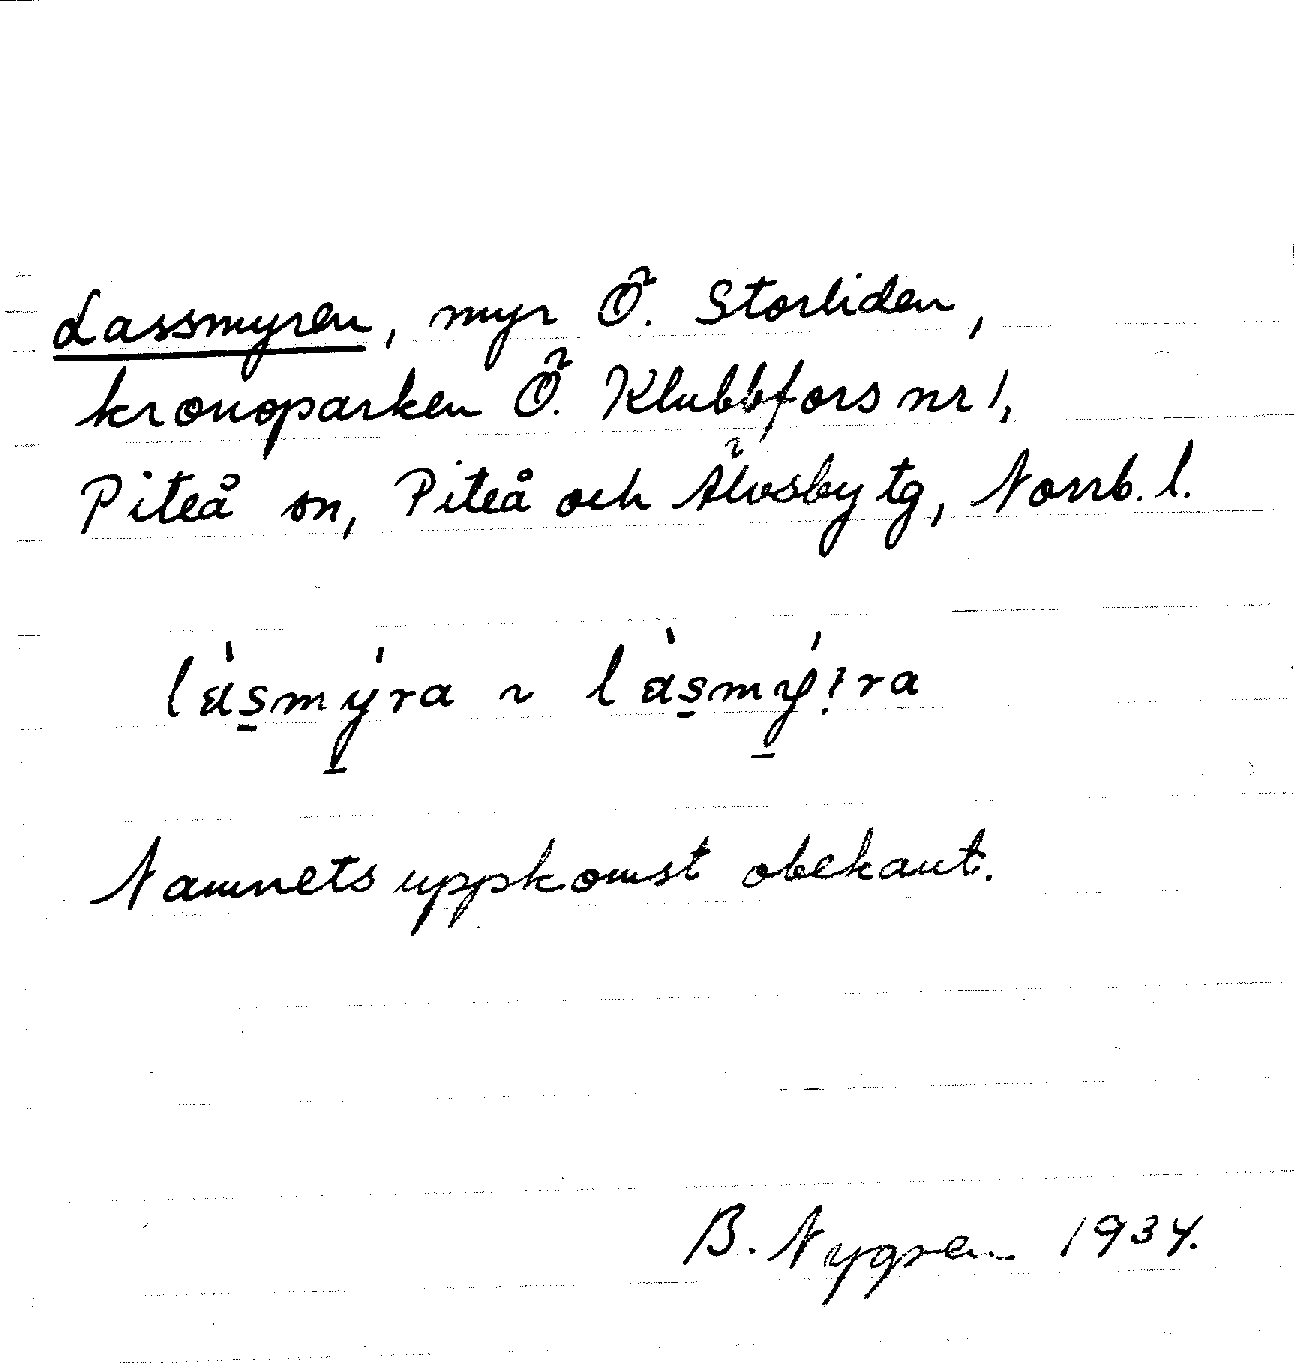 Lassmyren, myr Ö. Storliden,
kronoparken Ö. Klubbfors nr 1,
Piteå sn, Piteå och Älvsby tg, Norrb. l.
làsmýra ~ làsmý!ra
Namnets uppkomst obekant.
B. Nygren 1934.